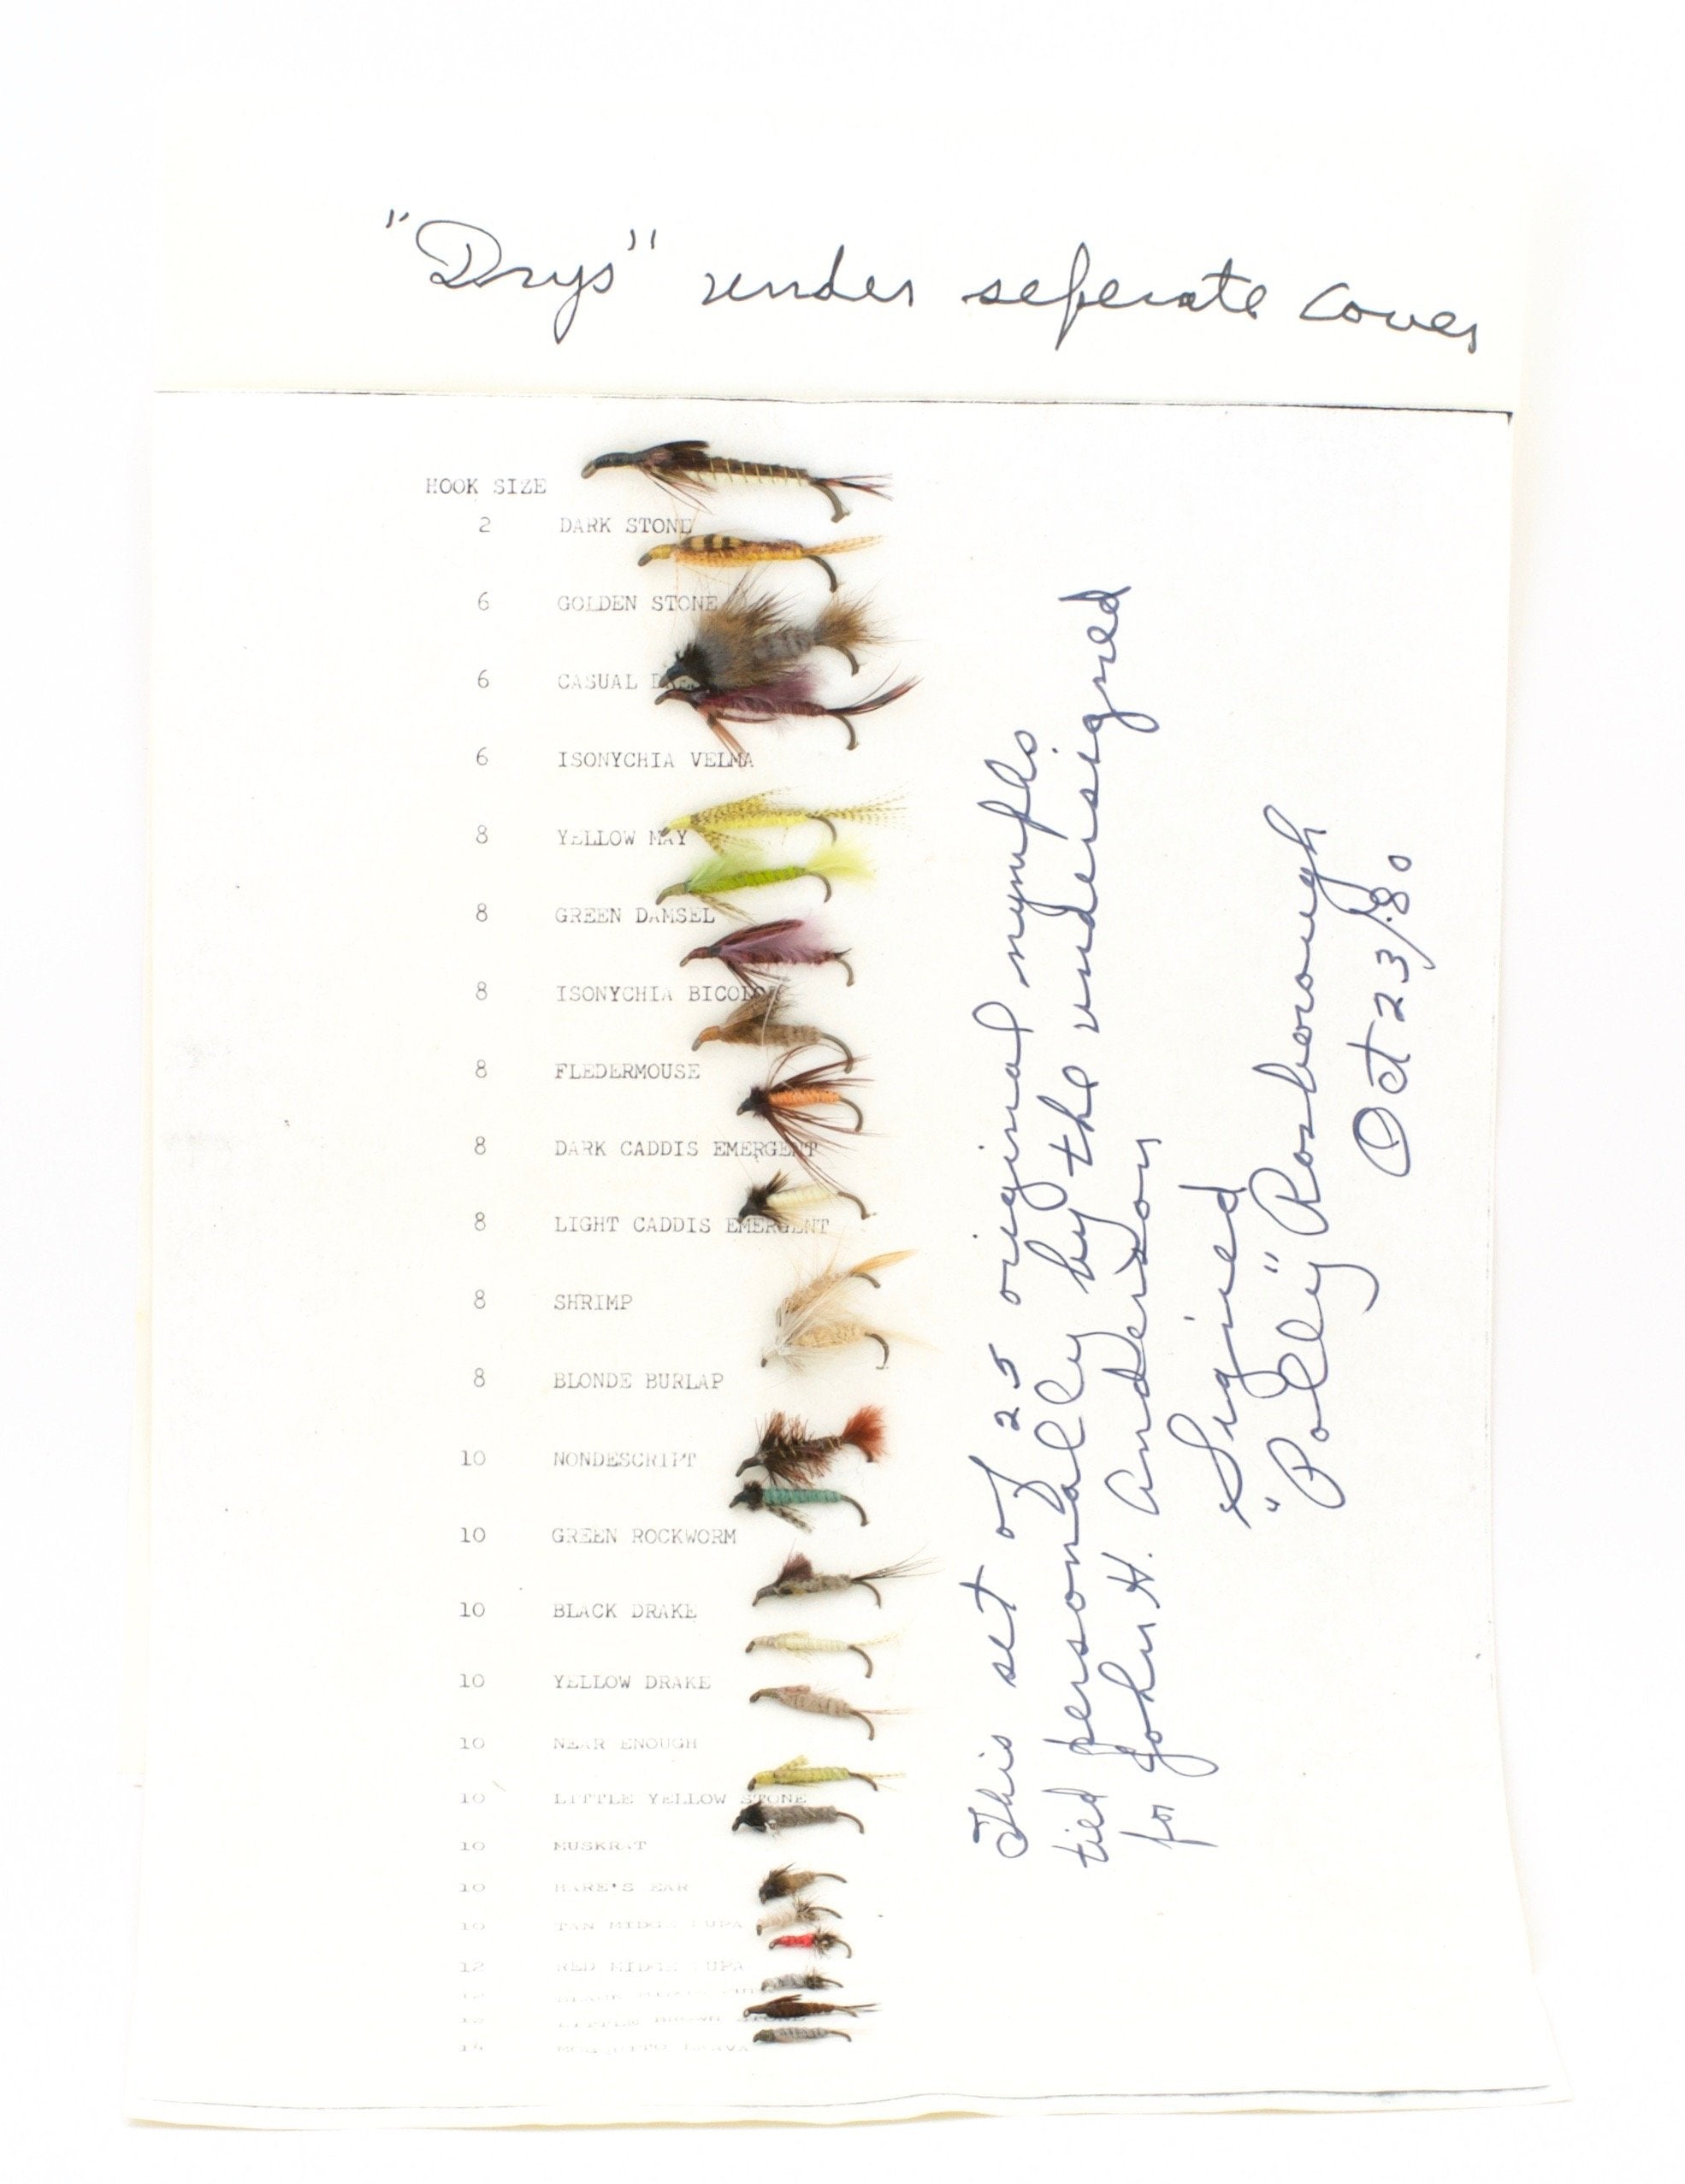 "Drys" under seperate cover
HOOK SIZE
2 DARK STONE
6 GOLDEN STONE
6 CASUAL
6 ISONYCHIA VELMA
8 YELLOW MAY
8 GREEN DAMSEL
8 ISONYCHIA BICOLOR
8 FLEDERMOUSE
8 DARK CADDIS EMERGENT
8 LIGHT CADDIS EMERGENT
8 SHRIMP
8 BLONDE BURLAP
10 NONDESCRIPT
10 GREEN ROCKWORM
10 BLACK DRAKE
10 YELLOW DRAKE
10 NEAR ENOUGH
10 LITTLE YELLOW STONE
10 MUSKRAT
10 HARE'S EAR
10 TAN MIDGE PUPA
12 RED MIDGE PUPA
12 BLACK MIDGE
12 LITTLE BROWN STONE
14 MOSQUITO LARVA
This set of 25 original nymphs
tied personally by the undersigned
for John H. Anderson
Signed
"Polly" Rosborough
Oct 23/80